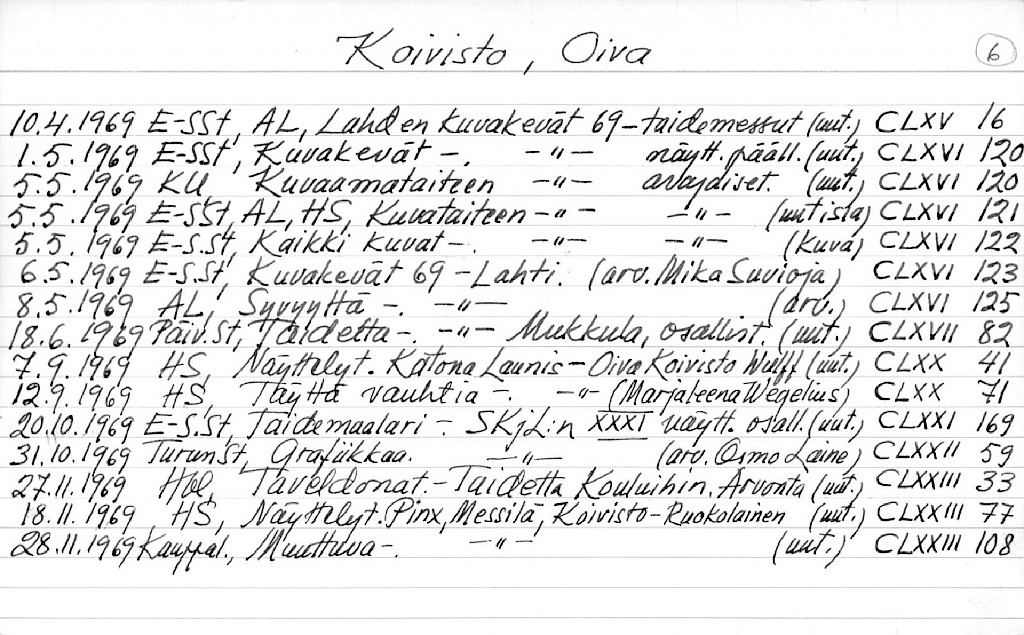 Koivisto, Oiva 6
10.4.1969 E-SSt, AL, Lahden Kuvakevät 69-taidemessut (uut.) CLXV 16
1.5.1969 E-SSt, Kuvakevät -. -"- näytt. pääll. (uut.) CLXVI 120
5.5.1969 KU, Kuvaamataiteen -"- avajaiset. (uut.) CLXVI 120
5.5.1969 E-S.St, AL, HS, Kuvataiteen -"- -"- (uutisia) CLXVI 121
5.5.1969 E-S.St, Kaikki kuvat -. -"- -"- (kuva) CLXVI 122
6.5.1969 E-S.St, Kuvakevät 69 - Lahti. (arv. Mika Suvioja) CLXVI 123
8.5.1969 AL, Syvyyttä -. -"- (arv.) CLXVI 125
18.6.1969 Päiv.St, Taidetta -. -"- Mukkula, osallist. (uut.) CLXVII 82
7.9.1969 HS, Näyttelyt. Katona Launis - Oiva Koivisto Wulff (uut.) CLXX 41
12.9.1969 HS, Täyttä vauhtia -. -"- (Marjaleena Wegelius) CLXX 71
20.10.1969 E-S.St, Taidemaalari -. SKjL:n XXXI näytt. osall. (uut.) CLXXI 169
31.10.1969 TurunSt, Grafiikkaa. -"- (arv. Osmo Laine) CLXXII 59
27.11.1969 Hbl, Taveldonat. - Taidetta Kouluihin. Arvonta (uut.) CLXXIII 33
18.11.1969, HS, Näyttelyt. Pinx, Messilä, Koivisto-Ruokolainen (uut.) CLXXIII 77
28.11.1969 Kauppal., Muuttuva -. -"- (uut.) CLXXIII 108